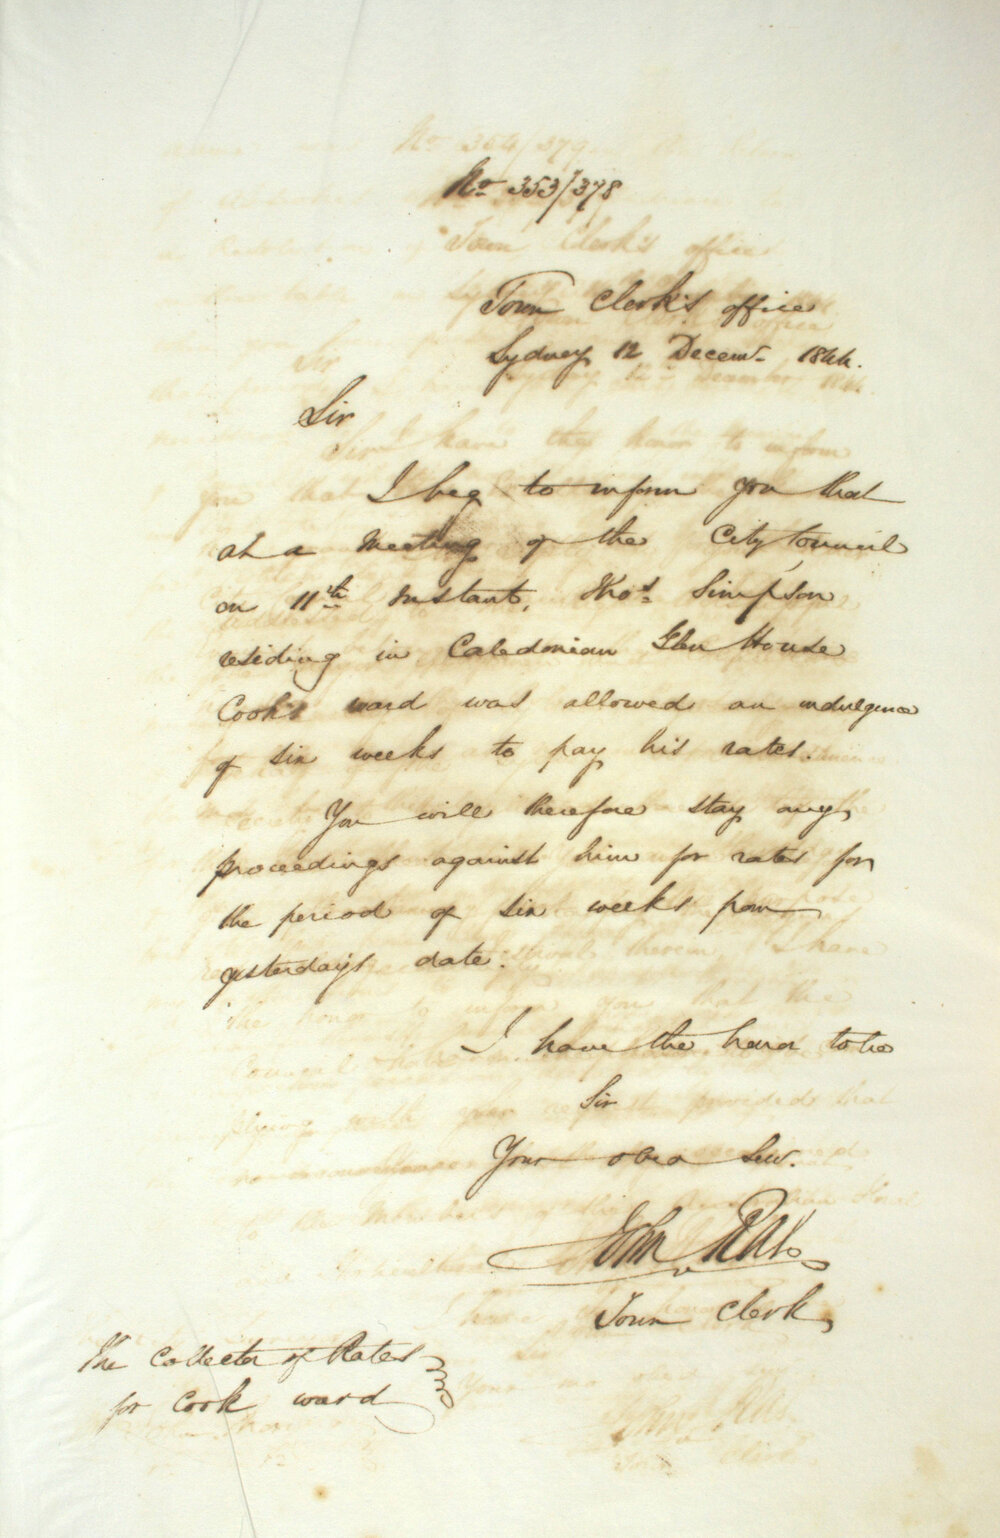 No 353/378
Town Clerk's office
Sydney 12 Decemr. 1844.
Sir
I beg to inform you that
at a meeting of the City Council
on 11th Instant, Thos. Simpson
residing in Caledonian Glen House
Cook's ward was allowed an indulgence
of six weeks to pay his rates.
You will therefore stay any
proceedings against him for rates for
the period of six weeks from
yesterday's date.
I have the honor to be
Sir
Your obed Serv.
John Rae
Town Clerk
The Collector of Rates
for Cook ward